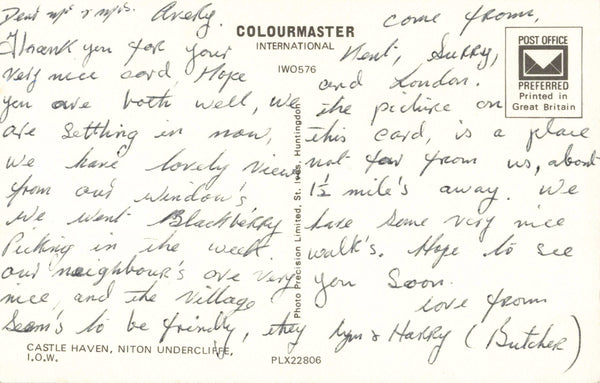 Dear Mr & Mrs. Avery.
Thank you for your
very nice card, Hope
you are both well, we
are settling in now,
we have lovely views
from our window's
we went Blackberry
Picking in the week.
our neighbour's are very
nice, and the village
seem's to be frindly, they
come from,
Kent, Surry,
and London.
The picture on
this card, is a place
not far from us, about
1½ mile's away. We
have some very nice
walk's. Hope to see
you soon.
love from
Lyn & Harry (Butcher)
COLOURMASTER
INTERNATIONAL
IWO576
POST OFFICE
PREFERRED
Printed in
Great Britain
Photo Precision Limited, St. Ives, Huntingdon
CASTLE HAVEN, NITON UNDERCLIFFE,
I.O.W.
PLX22806